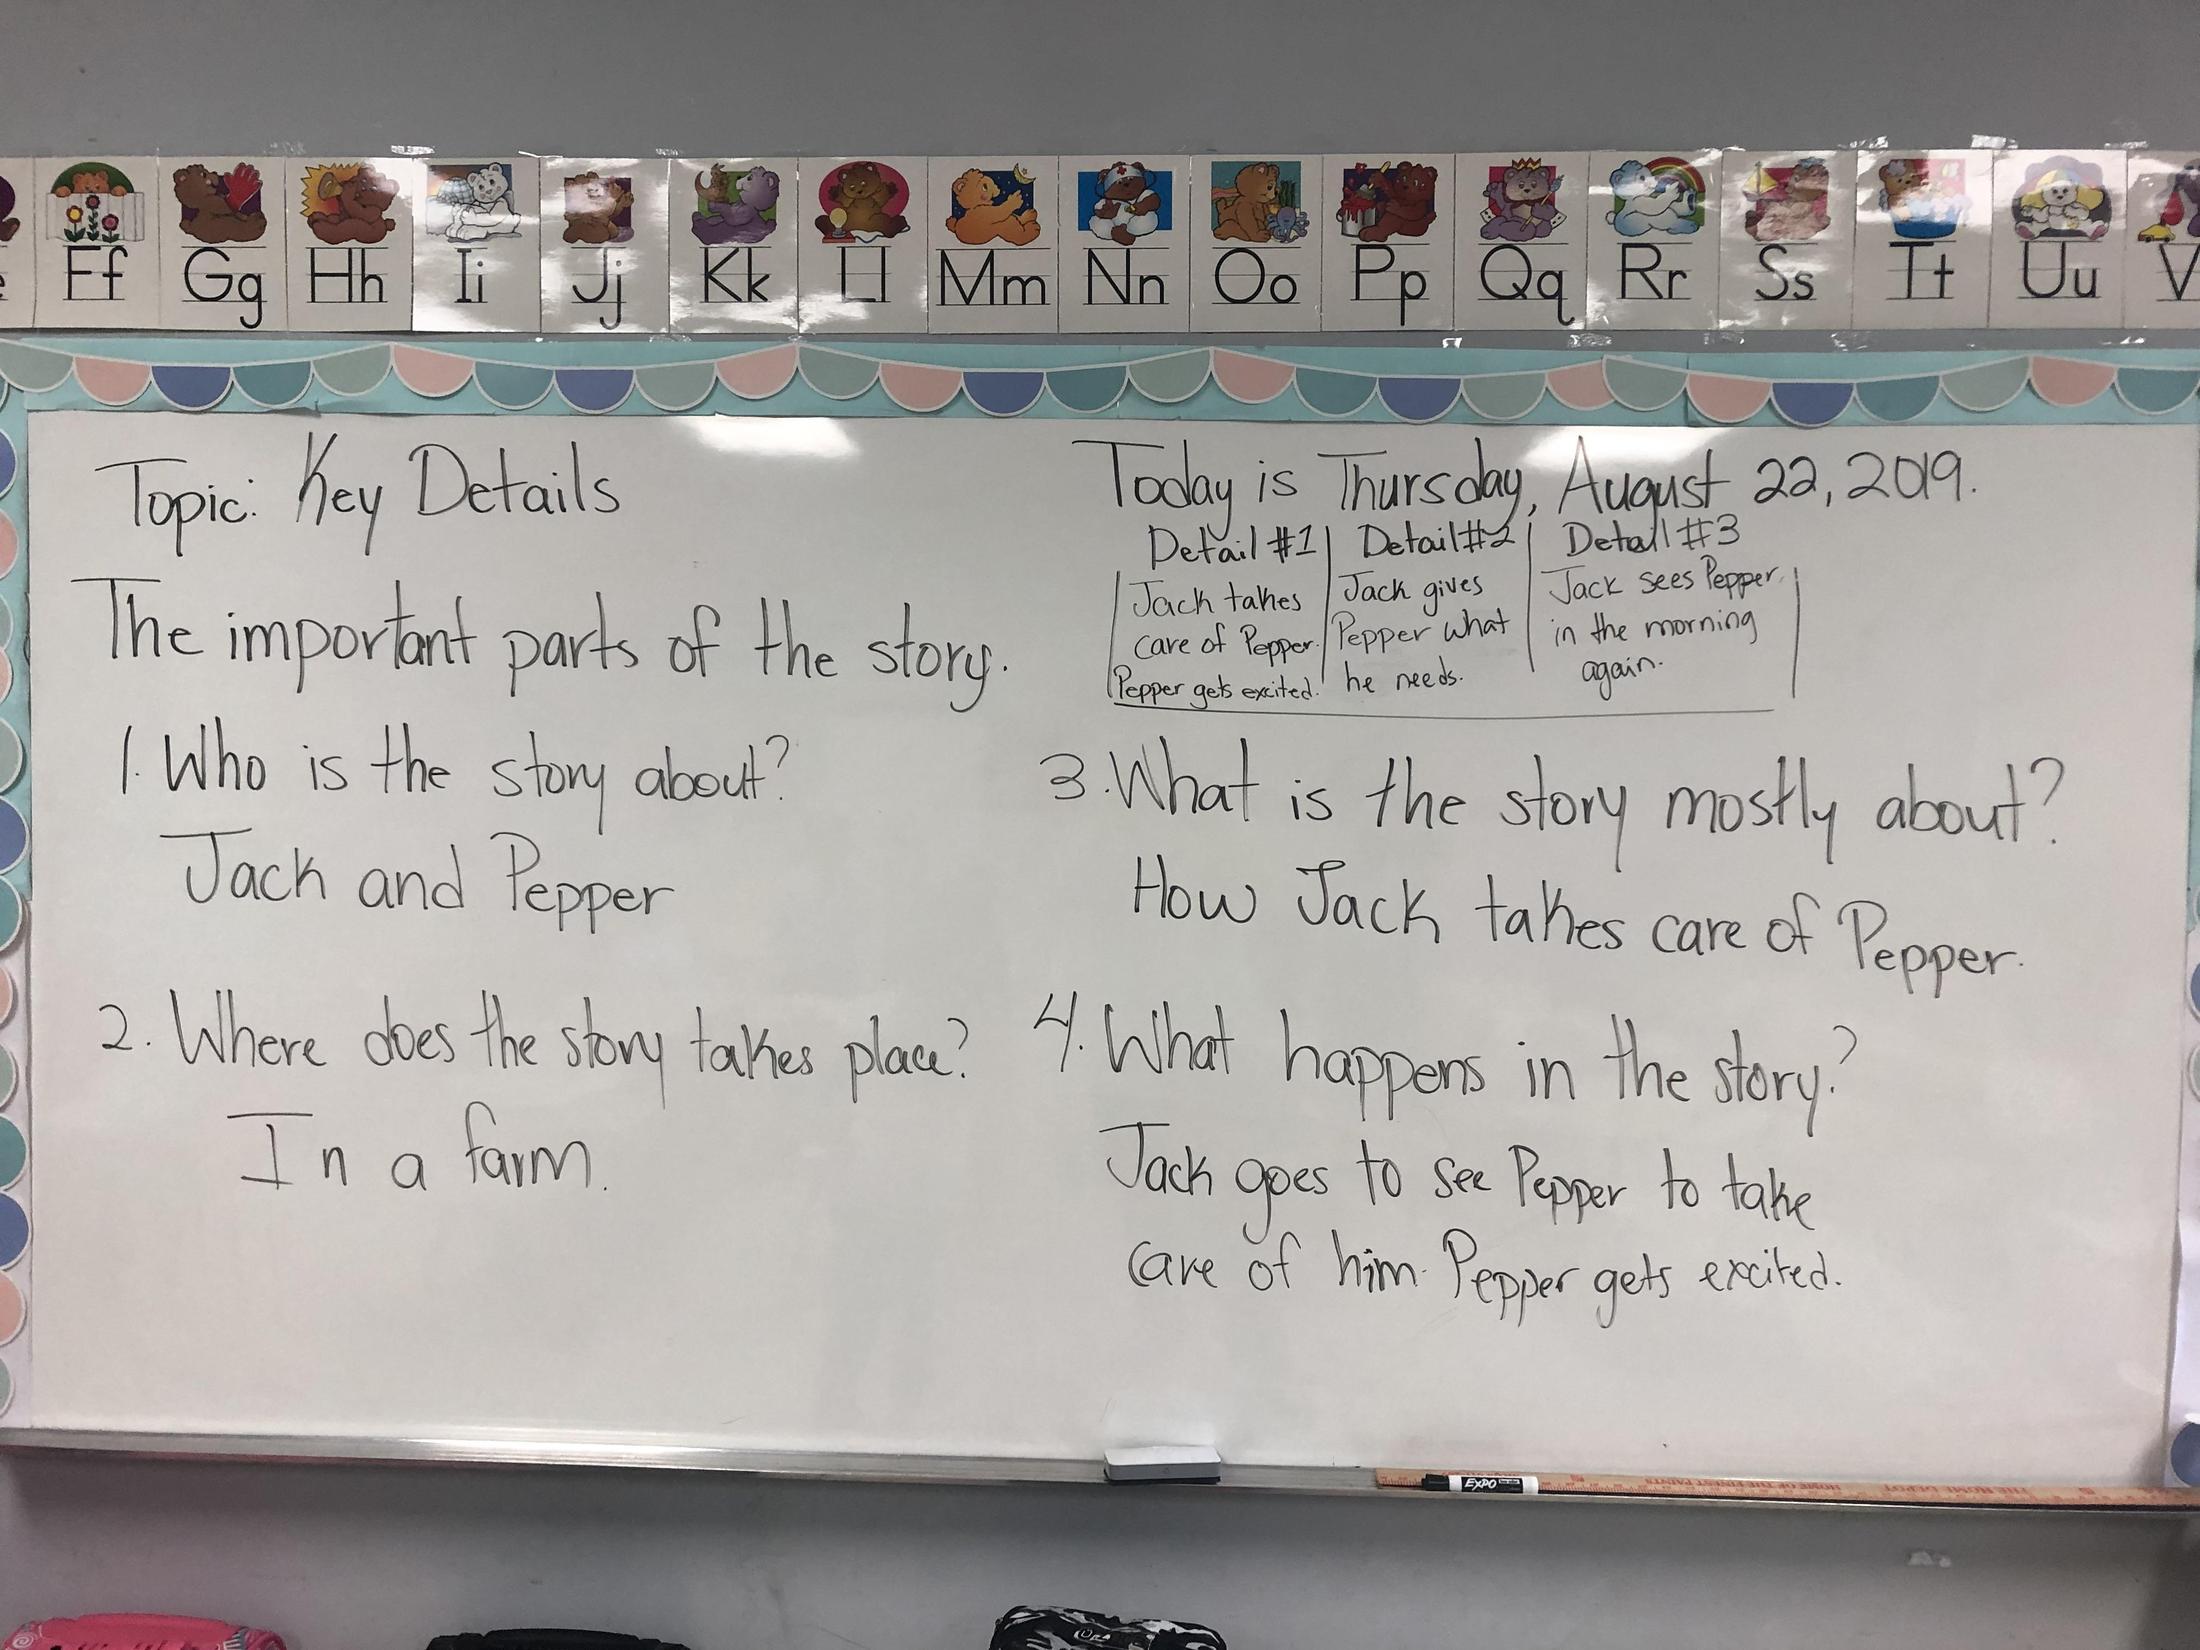 e
Ff
Gg
Hh
Ii
Jj
Kk
Ll
Mm
Nn
Oo
Pp
Qq
Rr
Ss
Tt
Uu
V
Topic: Key Details
The important parts of the story.
1. Who is the story about?
Jack and Pepper
2. Where does the story takes place?
In a farm.
Today is Thursday, August 22, 2019.
Detail #1
Jack takes
care of Pepper.
Pepper gets excited.
Detail #2
Jack gives
Pepper what
he needs.
Detail #3
Jack sees Pepper
in the morning
again.
3. What is the story mostly about?
How Jack takes care of Pepper.
4. What happens in the story?
Jack goes to see Pepper to take
care of him. Pepper gets excited.
EXPO
THE HOME DEPOT
HOME OF THE FINEST PAINTS